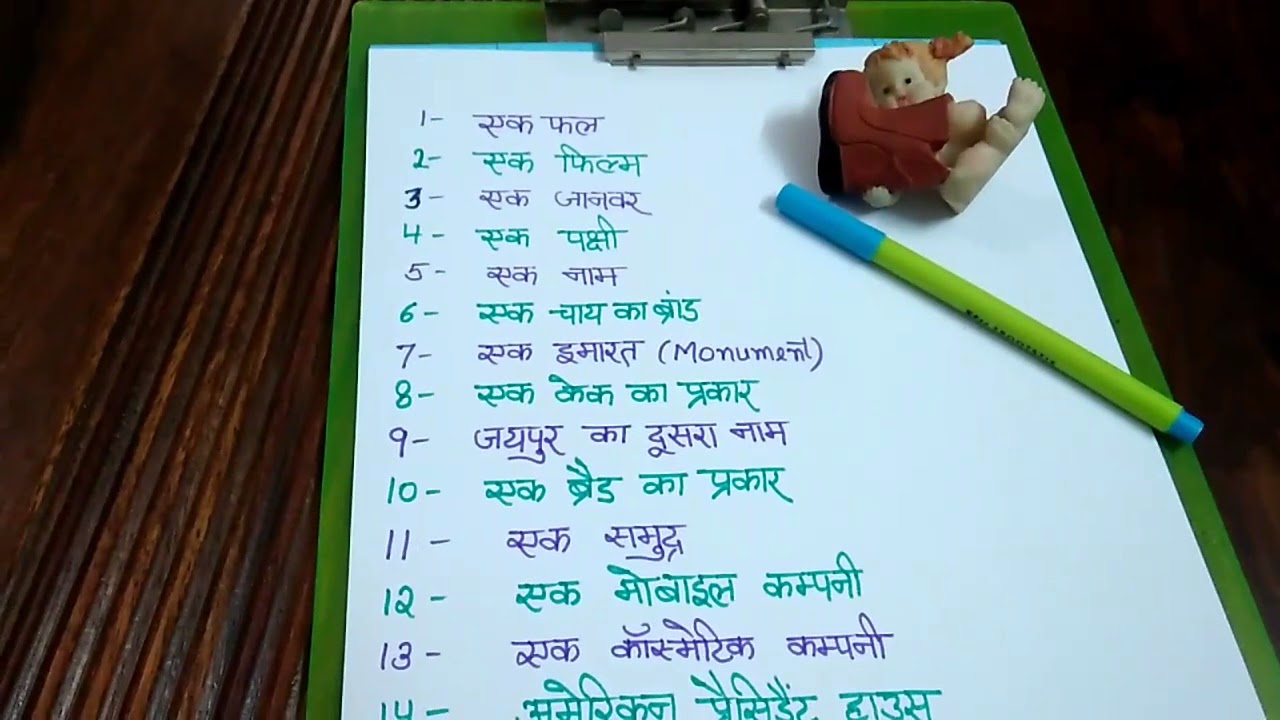 1- एक फल
2- एक फिल्म
3- एक जानवर
4- एक पक्षी
5- एक नाम
6- एक चाय का ब्रांड
7- एक इमारत (Monument)
8- एक केक का प्रकार
9- जयपुर का दूसरा नाम
10- एक ब्रैड का प्रकार
11- एक समुद्र
12- एक मोबाइल कम्पनी
13- एक कॉस्मेटिक कम्पनी
14- अमेरिकन प्रैसिडैंट हाउस